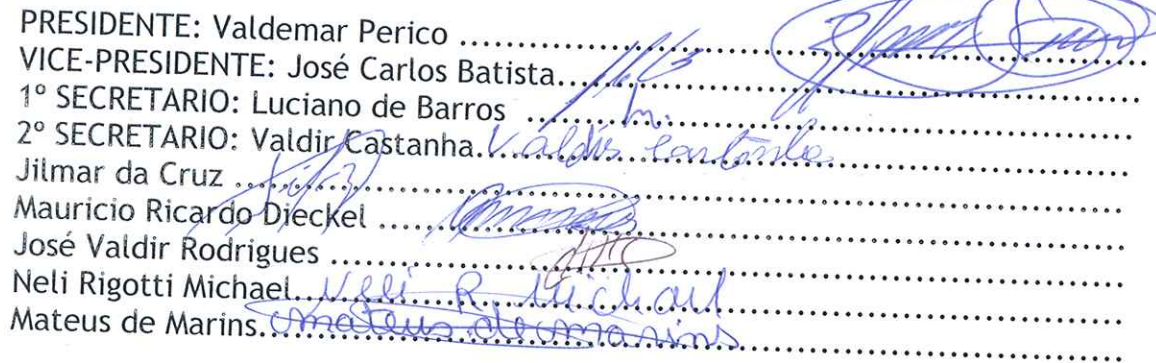 PRESIDENTE: Valdemar Perico ........................................................
VICE-PRESIDENTE: José Carlos Batista........................................................
1º SECRETARIO: Luciano de Barros ........................................................
2º SECRETARIO: Valdir Castanha. Valdir Castanha
Jilmar da Cruz ........................................................
Mauricio Ricardo Dieckel ........................................................
José Valdir Rodrigues ........................................................
Neli Rigotti Michael. Neli R. Michael
Mateus de Marins. Mateus de Marins